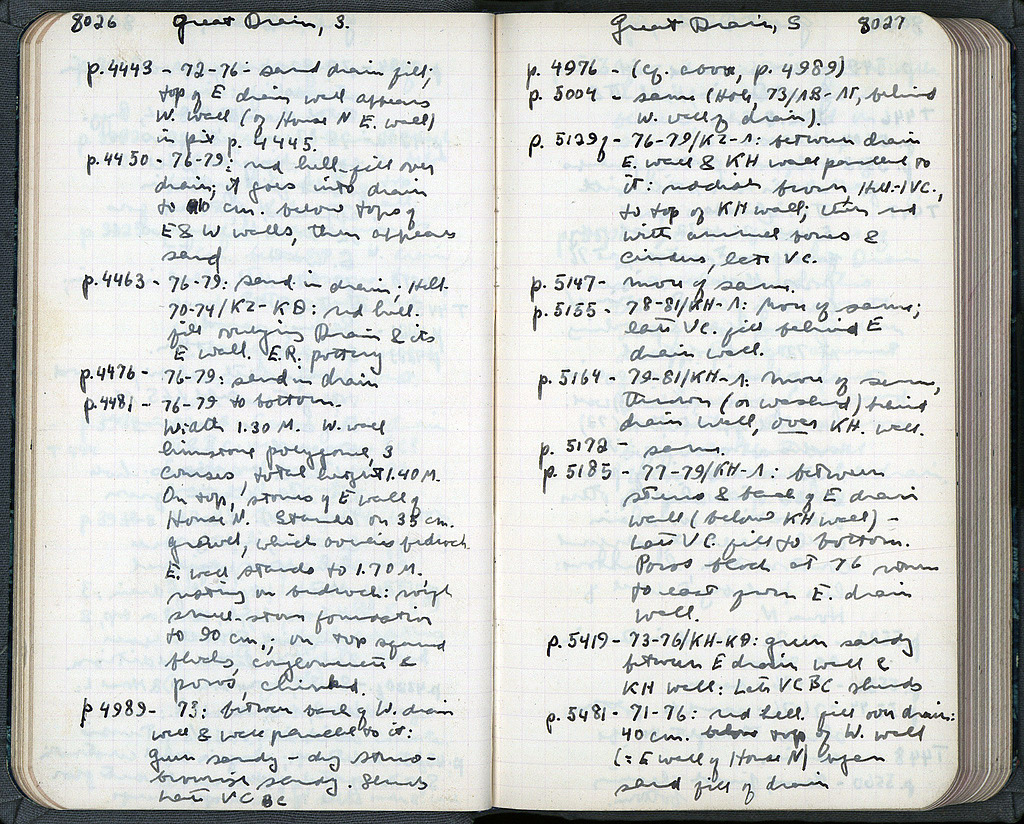 8026 Great Drain, S.
p. 4443 - 72-76: sand drain fill;
top of E drain wall appears
W. wall (of House N E. wall)
in pit p. 4445.
p. 4450 - 76-79: red hell. fill over
drain; it goes into drain
to 10 cm. below tops of
E & W walls, then appears
sand
p. 4463 - 76-79: sand in drain; Hell.
70-74/KZ-KΘ: red hell.
fill overlying Drain & its
E wall. E.R. pottery
p. 4476 - 76-79: sand in drain
p. 4481 - 76-79 to bottom.
Width 1.30 M. W. wall
limestone polygonal, 3
courses, total height 1.40 M.
On top, stones of E wall of
House N. Stands on 35 cm.
gravel, which overlies bedrock
E. wall stands to 1.70 M.
resting on bedrock: rough
small-stone foundation
to 90 cm.; on top squared
blocks, conglomerate &
poros, chinked.
p 4989 - 73: between back of W. drain
wall & wall parallel to it:
green sandy - dry stereo-
brownish sandy. Sherds
Late VC BC
Great Drain, S 8027
p. 4976 - (cf. above, p. 4989)
p. 5004 - same (Hole, 73/ΛB-ΛΓ, behind
W. wall of drain).
p. 5129f - 76-79/KZ-Λ: between drain
E. wall & KH wall parallel to
it: reddish brown Hell.-IVC.,
to top of KH wall; then red
with animal bones &
cinders, late VC.
p. 5147 - more of same.
p. 5155 - 78-81/KH-Λ: More of same;
late VC. fill behind E
drain wall.
p. 5164 - 79-81/KH-Λ: More of same,
thrown (or washed) behind
drain wall, over KH. wall.
p. 5172 - same.
p. 5185 - 77-79/KH-Λ: between
stereo & back of E drain
wall (below KH wall) -
Late VC. fill to bottom.
Poros block at 76
to east from E. drain
wall.
p. 5419 - 73-76/KH-KΘ: green sandy
between E drain wall &
KH wall: Late VC BC sherds
p. 5481 - 71-76: red hell. fill over drain:
40 cm. below top of W. wall
(= E wall of House N) began
sand fill of drain